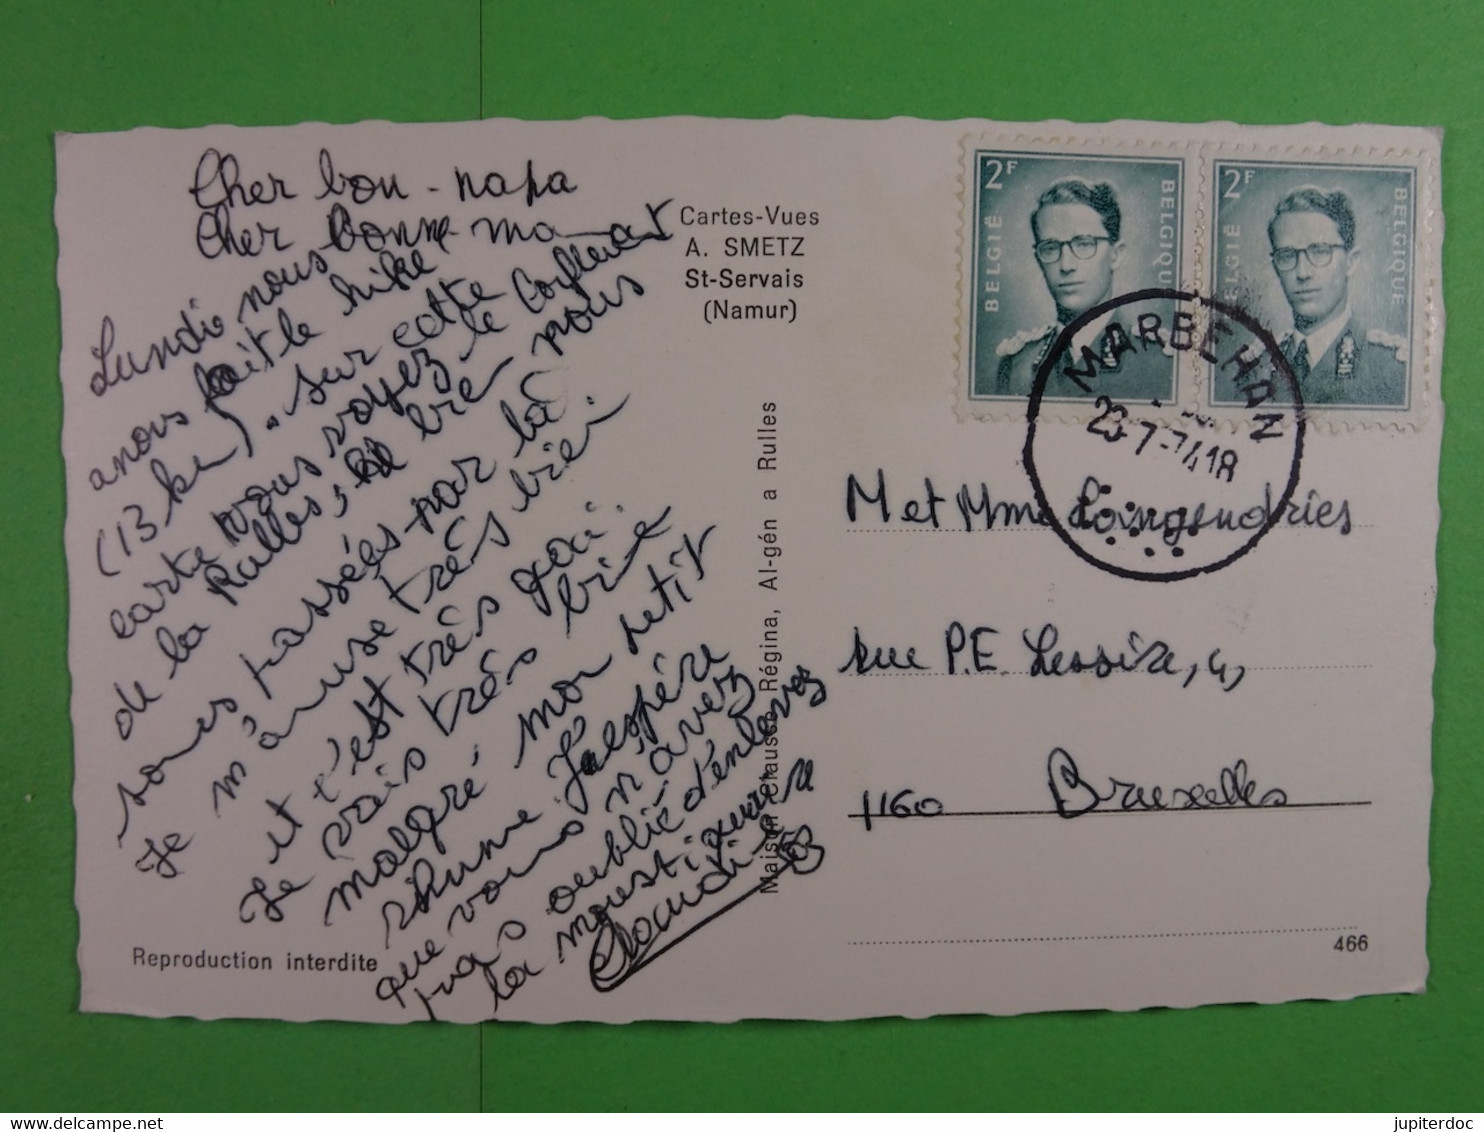 Cher bon-papa
Cher bonne-ma
Lundi nous
avons fait le hike
(13 km). sur cette
carte vous voyez le confluent
de la Rulles, et bien nous
somes passées par là.
Je m'amuse très bien.
Je
et c'est très
vais très bien
malgré mon petit
rhume J'espère
que vous n'avez
pas oublié d'enlever
la moustiquaire
Claudine
Cartes-Vues
A. SMETZ
St-Servais
(Namur)
Maison Régina, Al-gén a Rulles
2F
BELGIË
BELGIQUE
2F
BELGIË
BELGIQUE
MARBEHAN
23-7-74 18
M et Mme Longendries
rue P.E. Lessire, 4,
1160 Bruxelles
Reproduction interdite
466
jupiterdoc